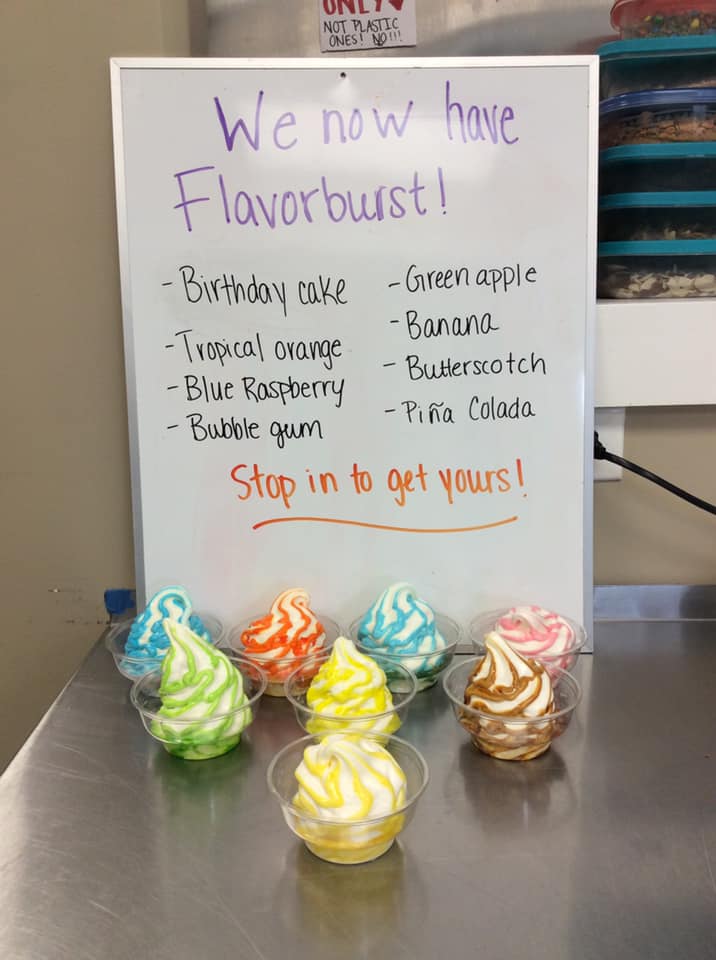 ONLY♥
NOT PLASTIC
ONES! NO!!!
We now have
Flavorburst!
- Birthday cake
- Tropical orange
- Blue Raspberry
- Bubble gum
- Green apple
- Banana
- Butterscotch
- Piña Colada
Stop in to get yours!